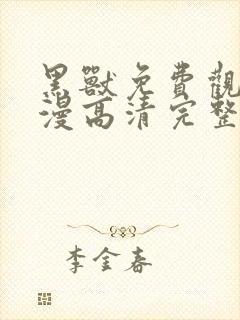 黑獸免費觀
漫高清完整
李金春